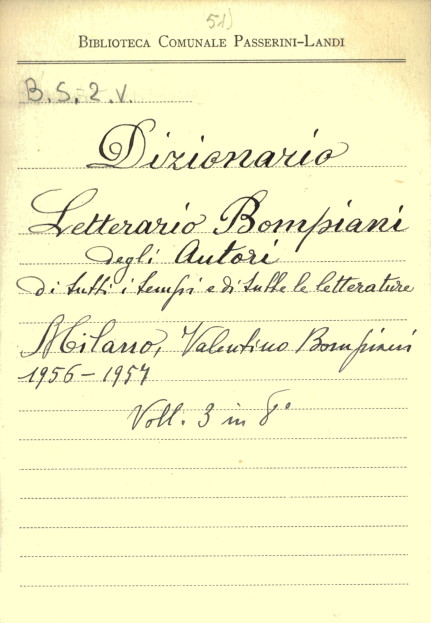 51)
BIBLIOTECA COMUNALE PASSERINI-LANDI
B. S. 2. V.
Dizionario
Letterario Bompiani
degli Autori
di tutti i tempi e di tutte le letterature
Milano, Valentino Bompiani
1956-1957
Voll. 3 in 8°